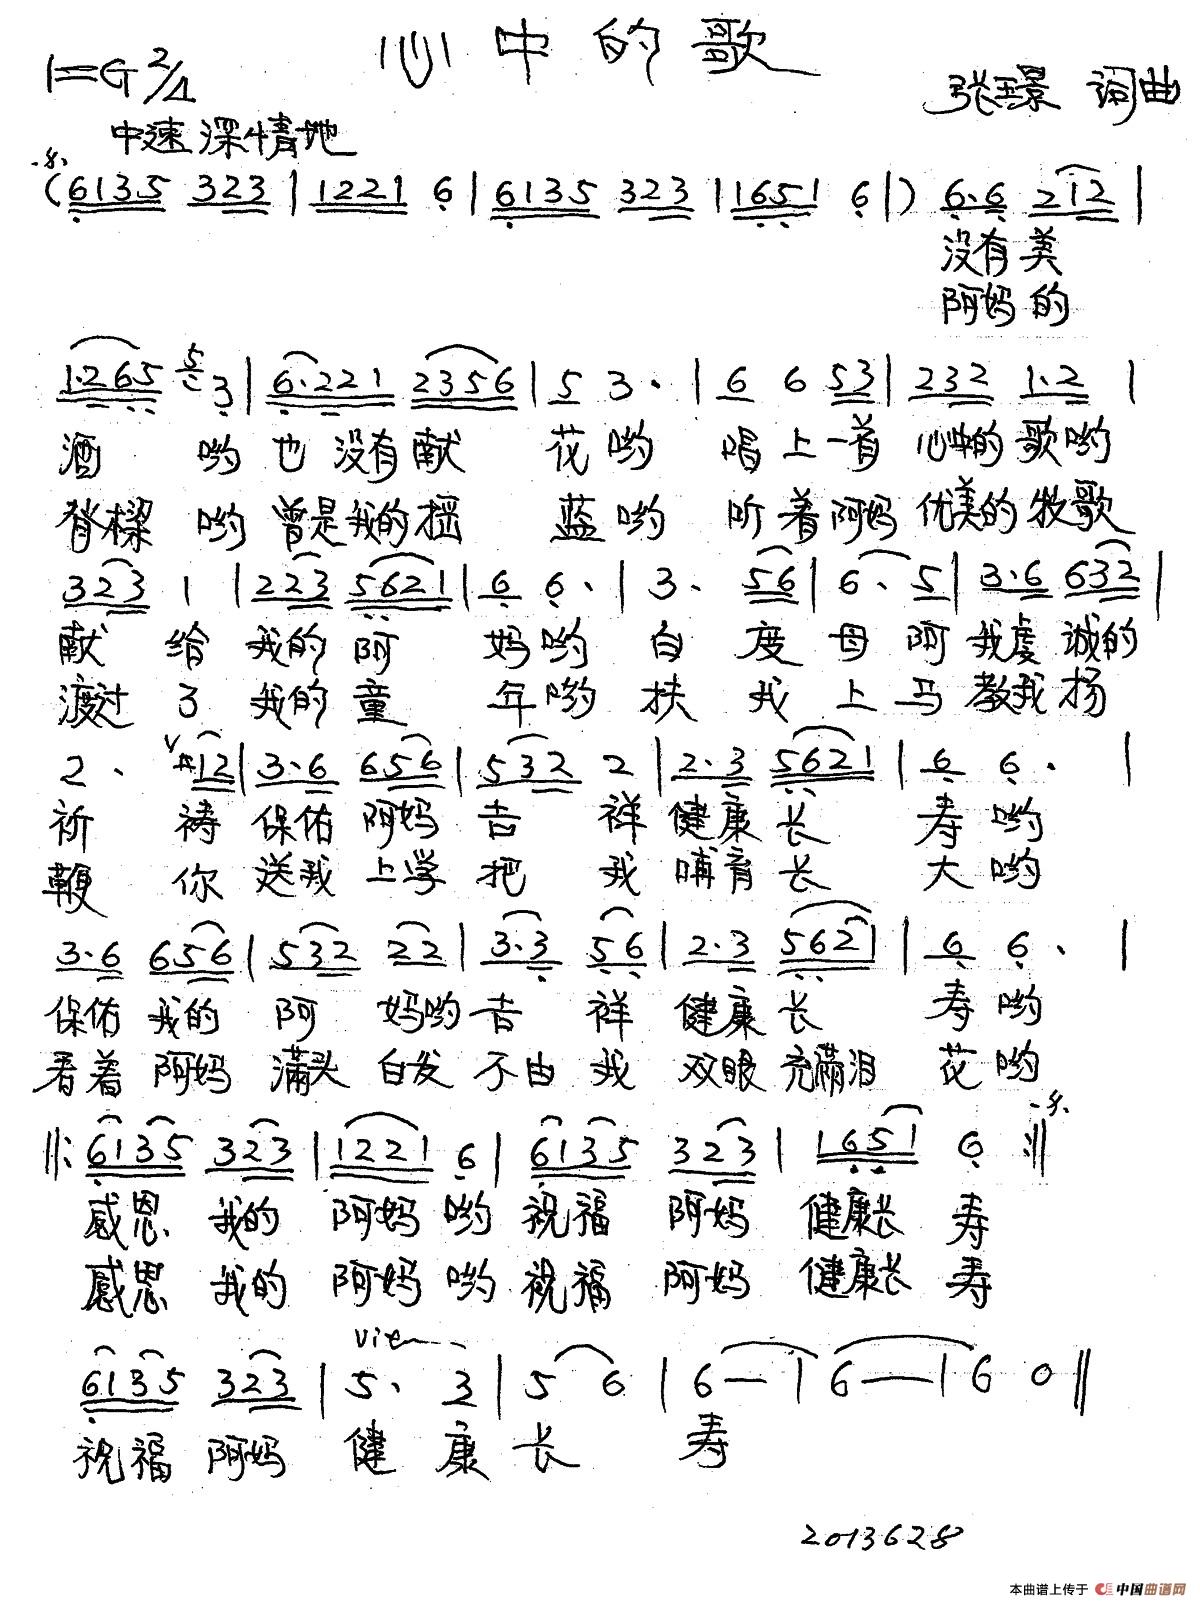 心中的歌
1=G 2/4
张璟 词曲
中速 深情地
(6135 323 | 1221 6 | 6135 323 | 1651 6 |) 6·6 212 |
没有美
阿妈的
1·265 5 3 | 6·221 2356 | 5 3· | 6 6 53 | 232 1·2 |
酒 哟 也 没有献 花哟 唱上一首 心中的 歌哟
脊樑 哟 曾是我的摇 蓝哟 听着阿妈 优美的 牧歌
323 1 | 223 5621 | 6 6· | 3· 56 | 6· 5 | 3·6 632 |
献 给 我的 阿 妈哟 白 度 母 阿 我虔 诚的
渡过 了 我的 童 年哟 扶 我 上 马 教我 扬
2· V #12 | 3·6 656 | 532 2 | 2·3 5621 | 6 6· |
祈 祷 保佑 阿妈 吉 祥 健康 长 寿 哟
鞭 你 送我 上学 把 我 哺育 长 大 哟
3·6 656 | 532 22 | 3·3 56 | 2·3 5621 | 6 6· |
保佑 我的 阿 妈哟 吉 祥 健康 长 寿 哟
看着 阿妈 满头 白发 不由 我 双眼 充满泪 花 哟
‖: 6135 323 | 1221 6 | 6135 323 | 1651 6 :‖
感恩 我的 阿妈 哟 祝福 阿妈 健康长 寿
感恩 我的 阿妈 哟 祝福 阿妈 健康长 寿
vit
6135 323 | 5· 3 | 5 6 | 6 — | 6 — | 6 0 ‖
祝福 阿妈 健 康 长 寿
2013628
本曲谱上传于 中国曲谱网